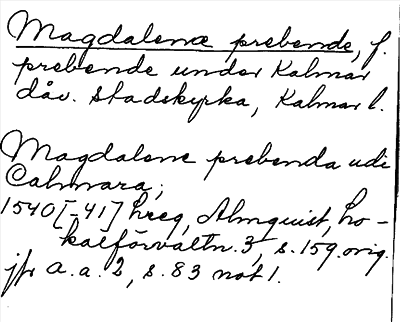 Magdalenæ prebende, f.
prebende under Kalmar
dåv. stadskyrka, Kalmar l.
Magdalene prebenda udi
Calmara,
1540[-41] hreg, Almquist, Lo-
kalförvaltn. 3, s. 159. orig.
jfr a. a. 2, s. 83 not 1.